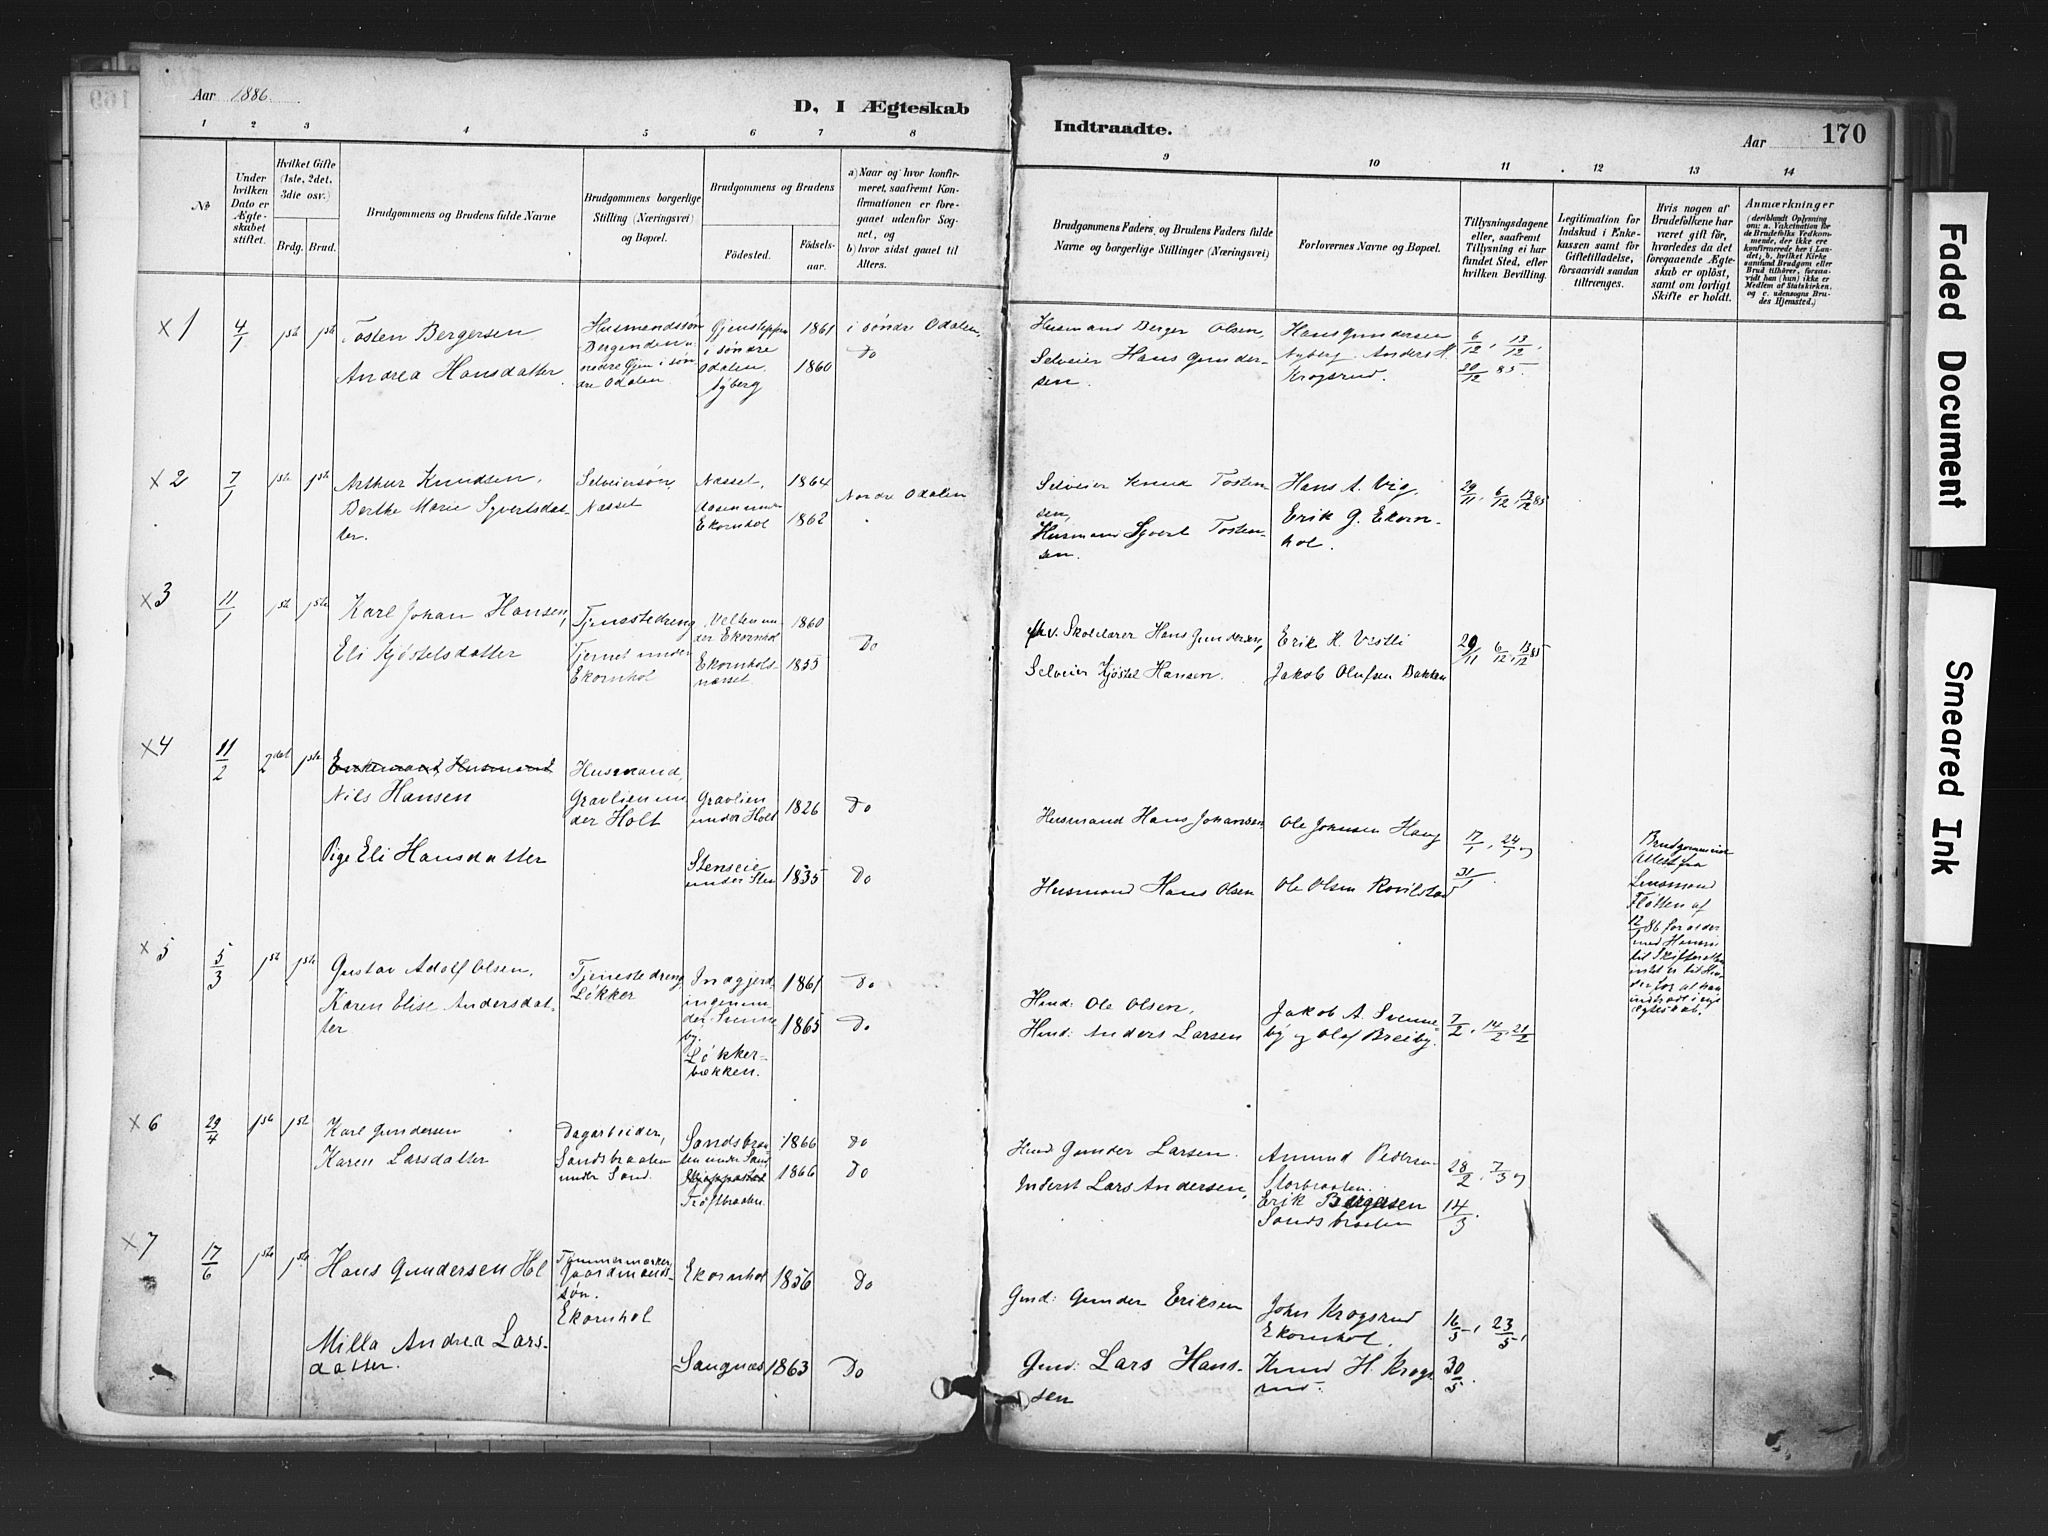 Aar 1886.
D, I Ægteskab
Indtraadte.
Aar
170
1 2 3 4 5 6 7 8
9 10 11 12 13 14
№
Under hvilken Dato er Ægte-skabet stiftet.
Hvilket Gifte (1ste, 2det, 3die osv.)
Brdg. Brud.
Brudgommens og Brudens fulde Navne
Brudgommens borgerlige Stilling (Næringsvei) og Bopæl.
Brudgommens og Brudens
Födested.
Födsels-aar.
a) Naar og hvor konfir-meret, saafremt Kon-firmationen er fore-gaaet udenfor Sog-net, og
b) hvor sidst gaaet til Alters.
Brudgommens Faders og Brudens Faders fulde Navne og borgerlige Stillinger (Næringsvei)
Forlovernes Navne og Bopæl.
Tillysningsdagene eller, saafremt Tillysning ei har fundet Sted, efter hvilken Bevilling.
Legitimation for Indskud i Enke-kassen samt for Giftetilladelse, forsaavidt saadan tiltrænges.
Hvis nogen af Brudefolkene har været gift för, hvorledes da det foregaaende Ægte-skab er oplöst, samt om lovligt Skifte er holdt.
Anmærkninger
(deriblandt Oplysning om: a. Vakcination for de Brudefolks Vedkom-mende, der ikke ere konfirmerede her i Lan-det; b. hvilket Kirke-samfund Brudgom eller Brud tilhörer, forsaa-vidt han (hun) ikke er Medlem af Statskirken, og c. udensogns Bru-des Hjemsted.)
x 1 4/1 1ste 1ste
Tosten Bergersen
Andrea Hansdatter
Husmandssøn
Bergenden u.
nedre Gjen i søn-
dre Odalen.
Gjensteppen
i søndre
Odalen,
Nyberg
1861
1860
i søndre Odalen,
Do
Husmand Berger Olsen,
Selveier Hans Gunder-
sen.
Hans Gundersen
Nyberg. Anders H.
Krogsrud.
6/12, 13/12,
20/12 85.
x 2 7/1 1ste 1ste
Arthur Knudsen,
Berthe Marie Syvertsdat-
ter.
Selveiersøn,
Næsset
Næsset,
Aasen under
Ekornhol
1864
1862
Nordre Odalen
Selveier Knud Tosten-
sen,
Husmand Syvert Tosten-
sen.
Hans A. Vig,
Erik G. Ekorn-
hol.
29/11, 6/12, 13/12 85
x 3 11/1 1ste 1ste
Karl Johan Hansen,
Eli Kjøstelsdatter
Tjenestedreng
Tjernet under
Ekornhol
Velten un-
der Ekornhol
Ekornhols-
næsset.
1860
1855
Do
fhv. Skolelærer Hans Gundersen,
Selveier Kjøstel Hansen.
Erik K. Vestli
Jakob Olufsen Bakken
29/11 6/12, 13/12 85
x 4 11/2 2det 1ste
Enkemand, Husmand
Nils Hansen
Pige Eli Hansdatter
Husmand,
Gravlien un-
der Holt
Gravlien
under Holt
Stenseie
under Sten
1826
1835
Do
Do
Husmand Hans Johansen
Husmand Hans Olsen
Ole Johnsen Haug
Ole Olsen Rovilstad
17/1, 24/1 og
31/1.
Brudgommens
Attest fra
Lensmand
Fløtten af
12/1 86 for at der
med Hensyn
til Skifte intet
er til Hin-
der for at han
indtræder i nyt
Ægteskab.
x 5 5/3 1ste 1ste
Gustav Adolf Olsen,
Karen Elise Andersdat-
ter
Tjenestedreng
Løkker
Indgjerd-
ingen un-
der Svenne-
by.
Løkker-
bækken.
1861
1865
Do
Do
Hmd: Ole Olsen,
Hmd: Anders Larsen
Jakob A. Svenne-
by og Olaf Breiby.
7/2, 14/2, 21/2
x 6 29/4 1ste 1ste
Karl Gundersen
Karen Larsdatter
Dagarbeider,
Sandsbraaten
under Sand.
Sandsbraa-
ten under Sand
Trøftbraaten.
1866
1866
Do
Do
Hmd Gunder Larsen.
Inderst Lars Andersen,
Amund Pedersen
Storbraaten.
Erik Bergersen
Sandsbraaten
28/2, 7/3 og
14/3.
x 7 17/6 1ste 1ste
Hans Gundersen Hol
Milla Andrea Lars-
datter.
Tømmermærker,
Gaardmands-
søn.
Ekornhol
Ekornhol
Saugnæs
1856
1863
Do
Do
Gmd: Gunder Eriksen
Gmd: Lars Han-
sen
John Krogsrud
Ekornhol.
Knud H. Krogs-
rud.
16/5, 23/5,
30/5
Faded Document
Smeared Ink